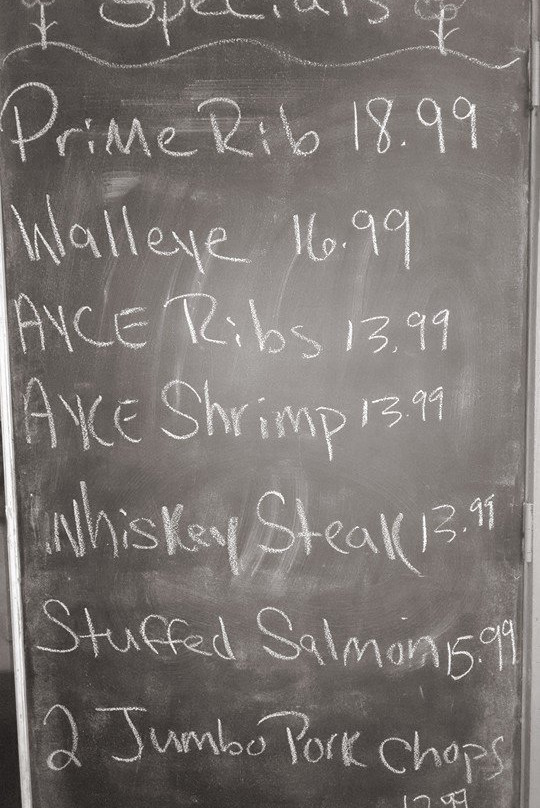 Specials
Prime Rib 18.99
Walleye 16.99
AYCE Ribs 13.99
AYCE Shrimp 13.99
Whiskey Steak 13.99
Stuffed Salmon 15.99
2 Jumbo Pork chops